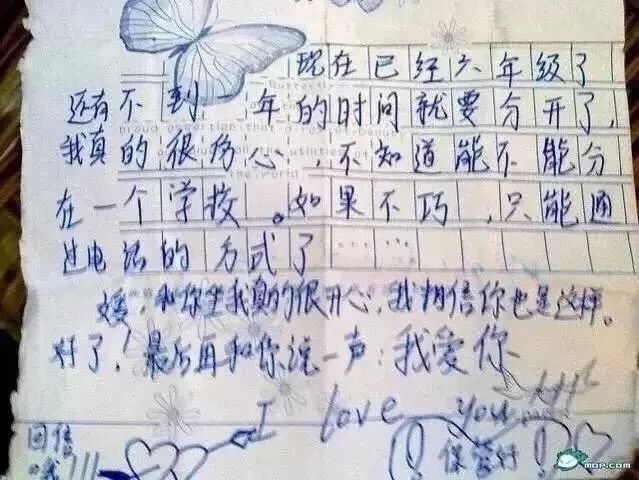 现在已经六年级了
还有不到 年的时间就要分开了,
我真的很伤心,不知道能不能分
在一个学校。如果不巧,只能通
过电话的方式了
媛,和你坐我真的很开心,我相信你也是这样。
好了!最后再和你说一声:我爱你
I love you
回信
哦!!!
!保管好!
MOP.COM